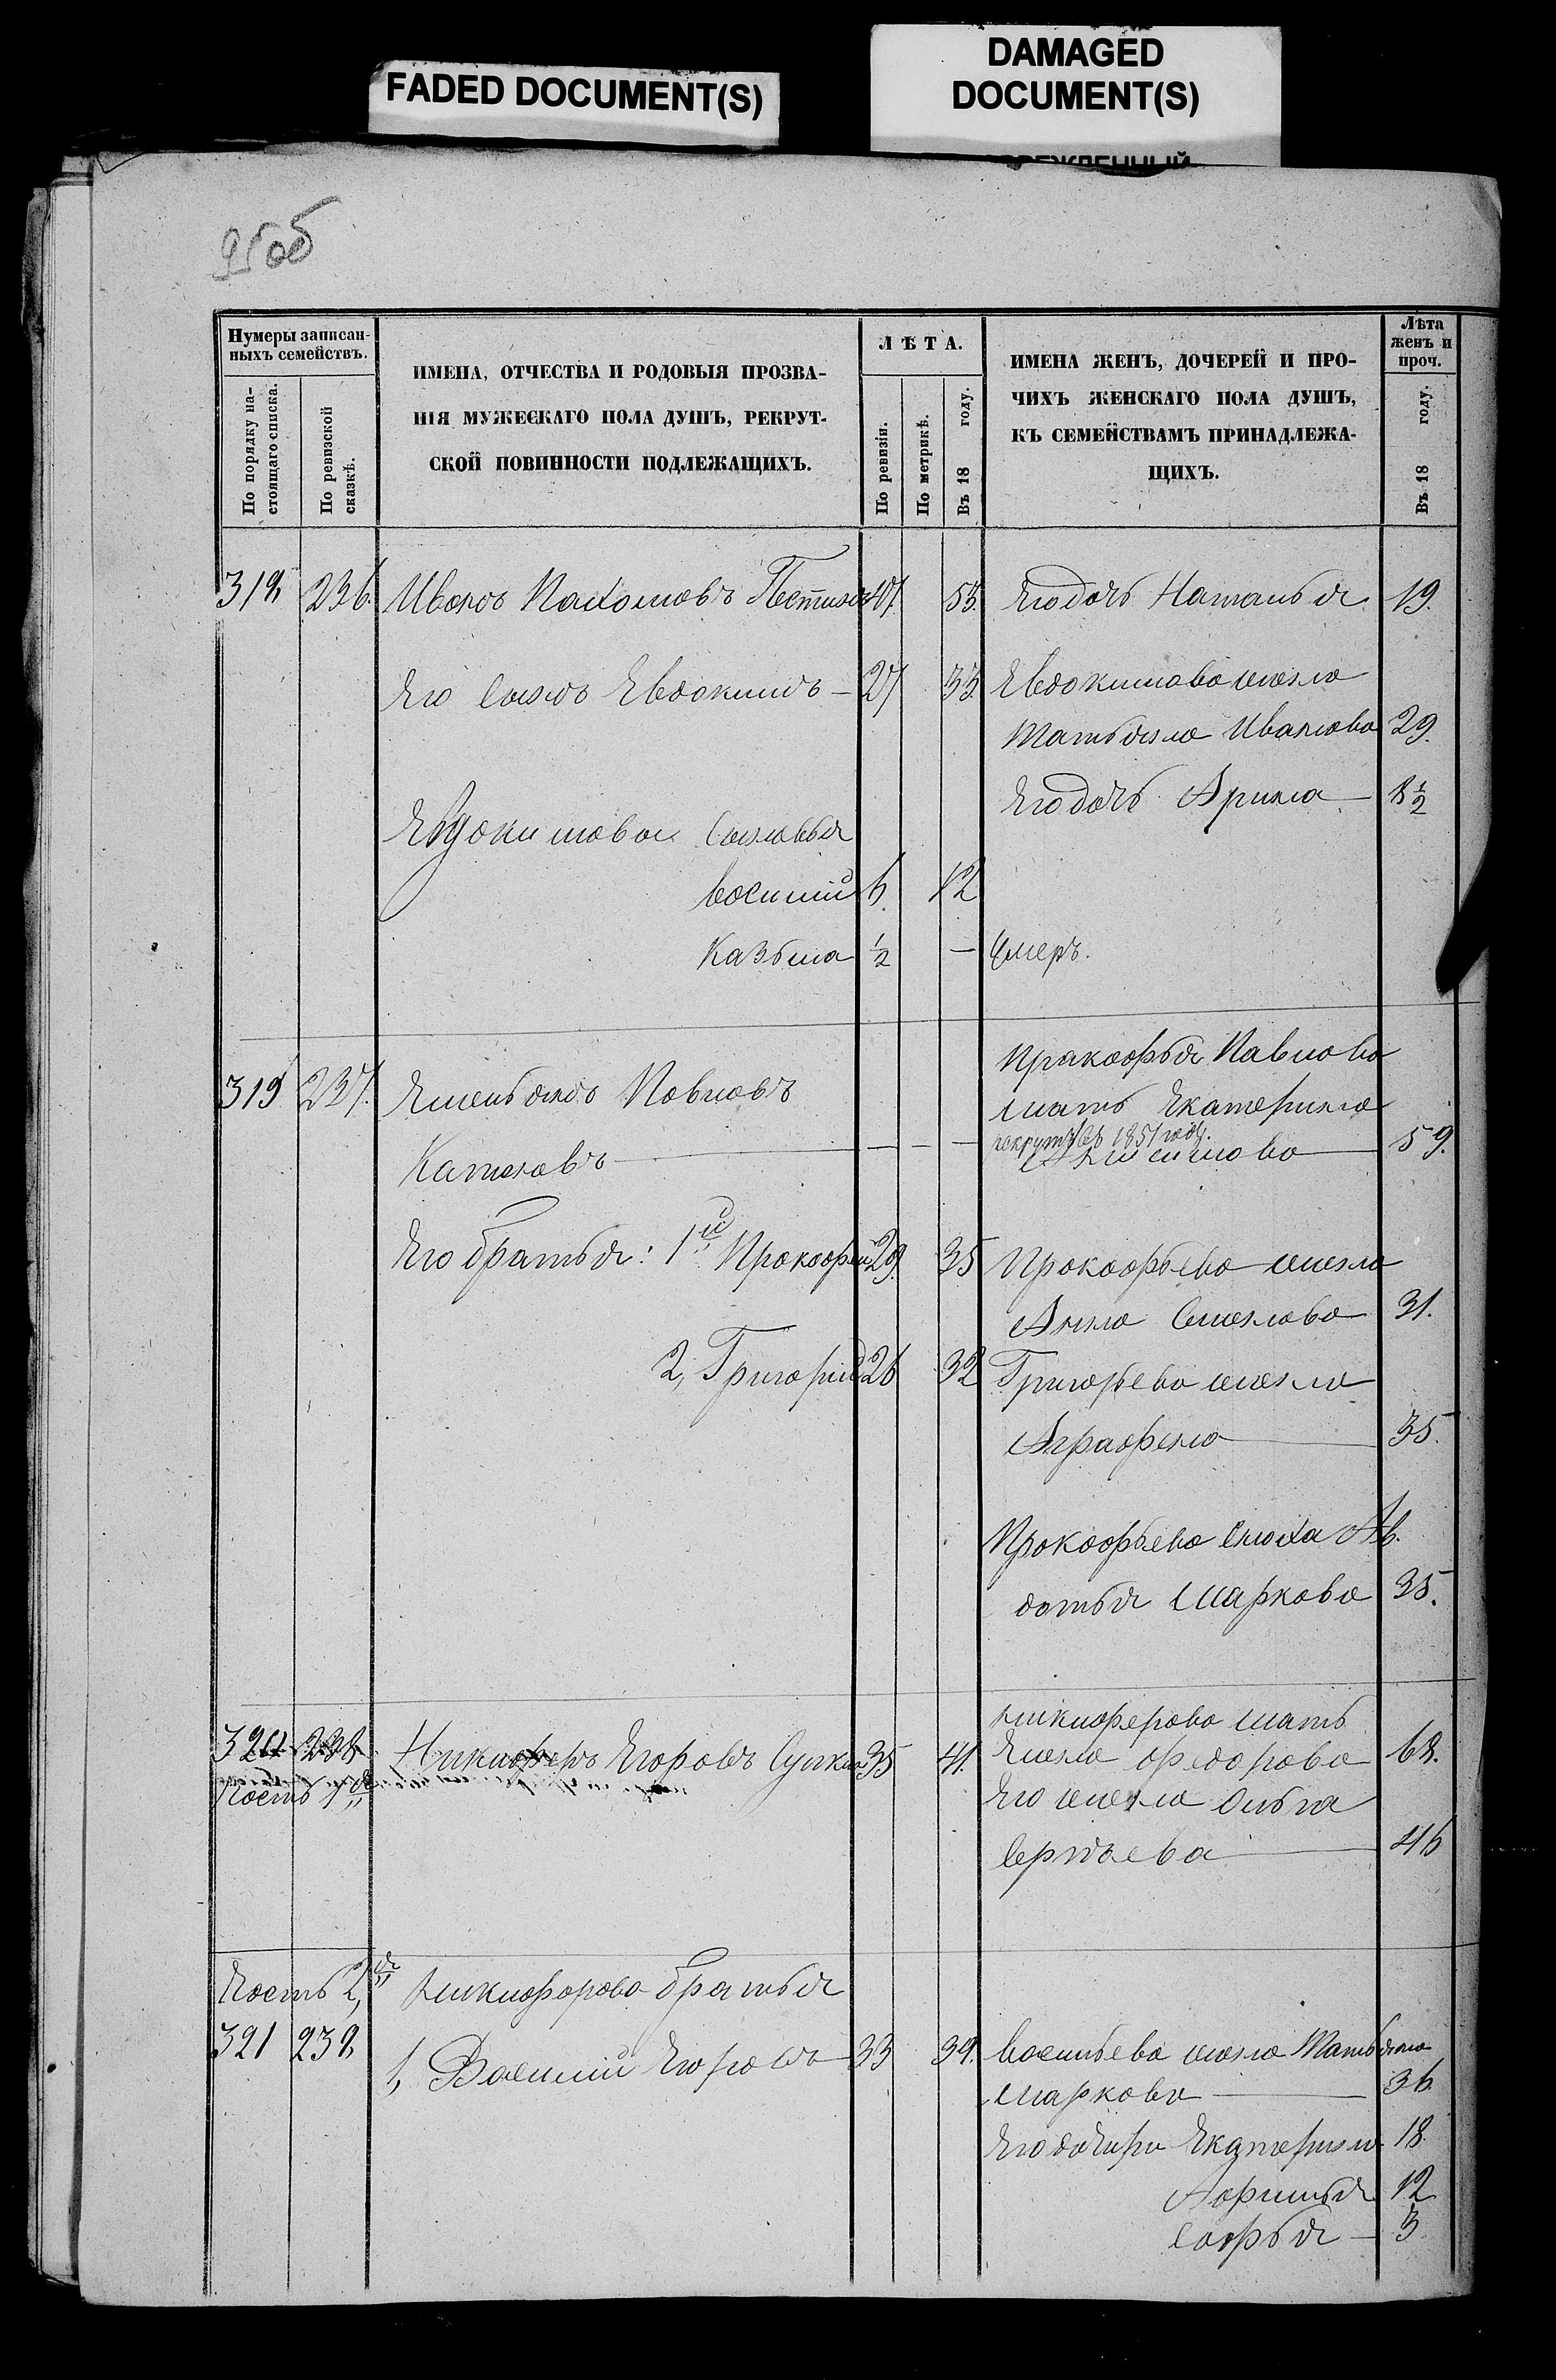 FADED DOCUMENT(S)
DAMAGED
DOCUMENT(S)
95об
Нумеры записан-
ныхъ семействъ.
По порядку на-
стоящаго списка.
По ревизской
сказкѣ.
ИМЕНА, ОТЧЕСТВА И РОДОВЫЯ ПРОЗВА-
НІЯ МУЖЕСКАГО ПОЛА ДУШЪ, РЕКРУТ-
СКОЙ ПОВИННОСТИ ПОДЛЕЖАЩИХЪ.
ЛѢТА.
По ревизіи.
По метрикѣ.
Въ 18 году.
ИМЕНА ЖЕНЪ, ДОЧЕРЕЙ И ПРО-
ЧИХЪ ЖЕНСКАГО ПОЛА ДУШЪ,
КЪ СЕМЕЙСТВАМЪ ПРИНАДЛЕЖА-
ЩИХЪ.
Лѣта
женъ и
проч.
Въ 18 году.
318 236 Иванъ Пахомовъ 47 53. Его дочь Наталья 19.
Его сынъ Евдокимъ 27 33. Евдокимова жена
Татьяна Иванова 29.
Его дочь Арина 8 1/2
Евдокимовы сыновья
Василий 6. 12
Казьма 1/2 — Умеръ.
Пракофья Павлова
319 237. Емельянъ Павловъ мать Екатерина
рекрутъ въ 1851 году.
— — — 59.
Его братья: 1й Прокофей 29. 35 Прокофьева жена
Анна Семенова 31.
2, Григорий 26 32 Григорьева жена
Аграфена 35.
Прокофьева сноха Ав-
дотья Маркова 35.
Никиферова мать
320 238 Никиферъ Егоровъ 35 41. Елена Федорова 68.
Часть 1я Его жена Ольга
Сергѣева 46
Часть 2,я Никифорова братья
321 238, 1, Василий Егоровъ 33 39. Васильева жена Татьяна
Маркова 36
Его дочери Екатерина 18
Афимья 12
Софья 3